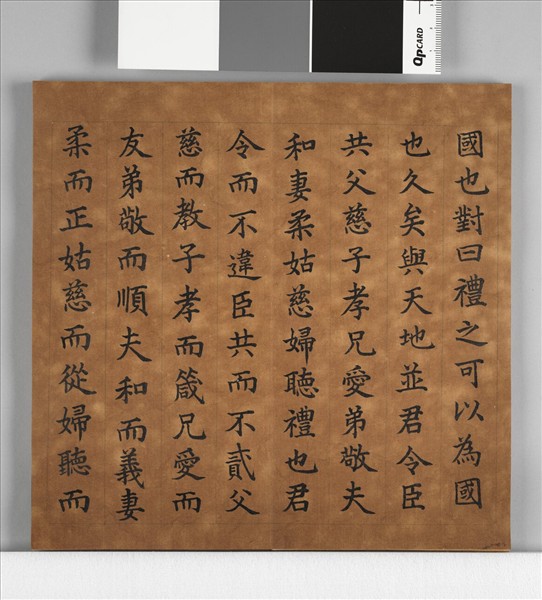 國也對曰禮之可以為國
也久矣與天地並君令臣
共父慈子孝兄愛弟敬夫
和妻柔姑慈婦聽禮也君
令而不違臣共而不貳父
慈而教子孝而箴兄愛而
友弟敬而順夫和而義妻
柔而正姑慈而從婦聽而
QPCARD